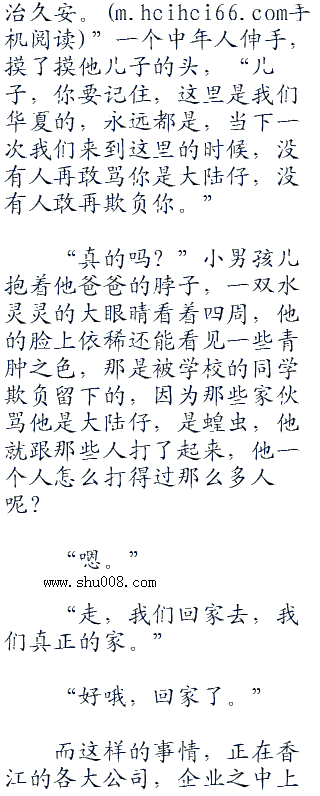 治久安。(m.hcihci66.com手
机阅读)”一个中年人伸手，
摸了摸他儿子的头，“儿
子，你要记住，这里是我们
华夏的，永远都是，当下一
次我们来到这里的时候，没
有人再敢骂你是大陆仔，没
有人敢再欺负你。”
“真的吗？”小男孩儿
抱着他爸爸的脖子，一双水
灵灵的大眼睛看着四周，他
的脸上依稀还能看见一些青
肿之色，那是被学校的同学
欺负留下的，因为那些家伙
骂他是大陆仔，是蝗虫，他
就跟那些人打了起来，他一
个人怎么打得过那么多人
呢？
“嗯。”
www.shu008.com
“走，我们回家去，我
们真正的家。”
“好哦，回家了。”
而这样的事情，正在香
江的各大公司，企业之中上